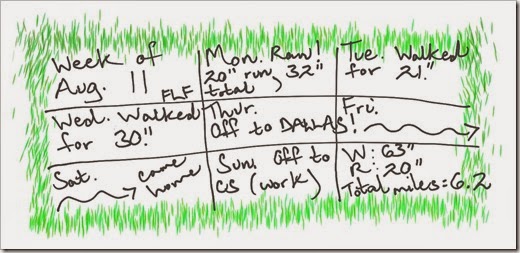 Week of
Aug. 11
FLF
Mon. Ran!
20" run, 32"
total
Tue. Walked
for 21."
Wed. Walked
for 30."
Thur.
Off to DALLAS!
Fri.
Sat.
came
home
Sun. Off to
CS (work)
W : 63"
R : 20"
Total miles = 6.2